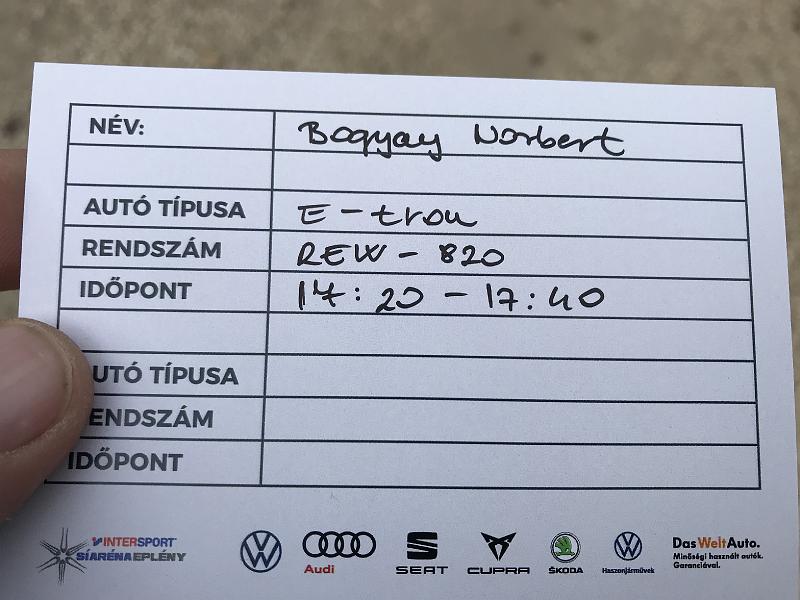 NÉV: Bogyay Norbert
AUTÓ TÍPUSA E-tron
RENDSZÁM REW-820
IDŐPONT 17:20-17:40
UTÓ TÍPUSA
ENDSZÁM
IDŐPONT
INTERSPORT
SÍARÉNA EPLÉNY
Audi
SEAT
CUPRA
ŠKODA
Haszonjárművek
DasWeltAuto.
Minőségi használt autók.
Garanciával.